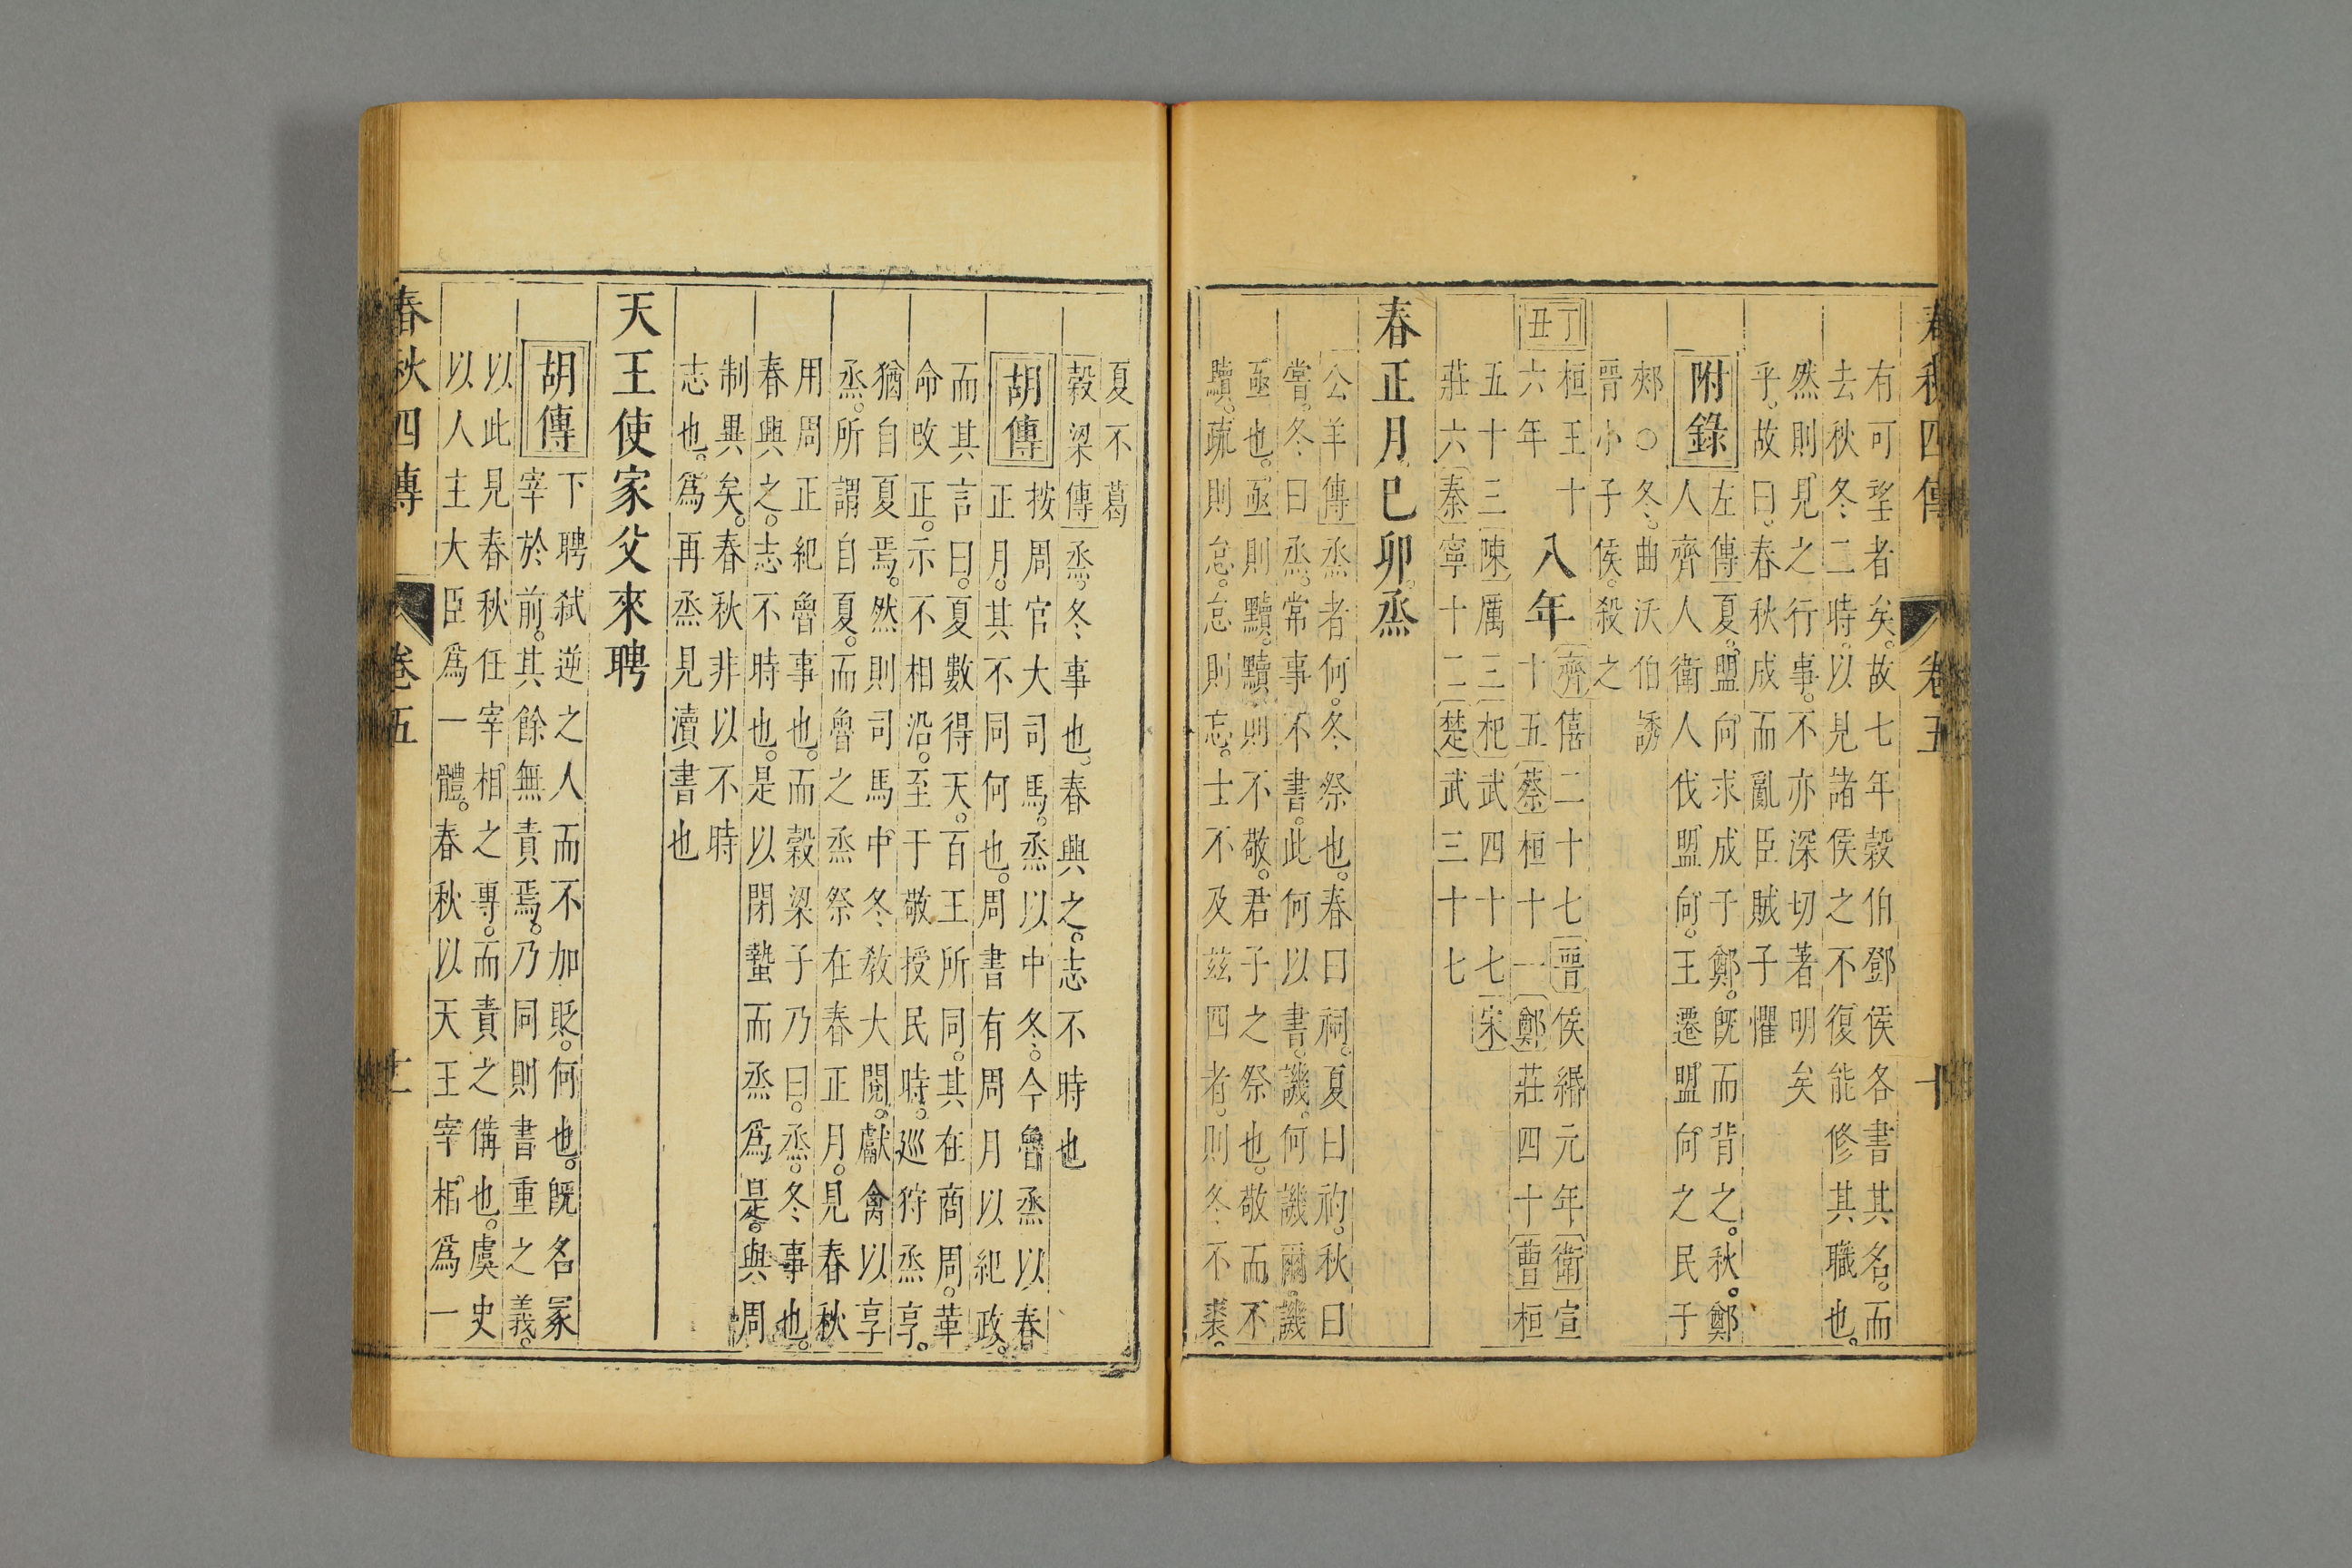 春秋四傳 卷五 十
有可望者矣。故七年穀伯鄧侯各書其名。而
去秋冬二時。以見諸侯之不復能修其職也。
然則見之行事。不亦深切著明矣
乎。故曰。春秋成而亂臣賊子懼
附錄
左傳夏。盟向求成于鄭。旣而背之。秋。鄭
人齊人衛人伐盟向。王遷盟向之民于
郟○冬。曲沃伯誘
晉小子侯。殺之
丁丑
桓王十
六年
八年
齊僖二十七晉侯緡元年衛宣
十五蔡桓十一鄭莊四十曹桓
五十三陳厲三杞武四十七宋
莊六秦寧十二楚武三十七
春正月己卯。烝
公羊傳烝者何。冬祭也。春曰祠。夏曰礿。秋曰
嘗。冬曰烝。常事不書。此何以書。譏。何譏爾。譏
亟也。亟則黷。黷則不敬。君子之祭也。敬而不
黷。疏則怠。怠則忘。士不及兹四者。則冬不裘。
夏不葛
穀梁傳烝。冬事也。春興之。志不時也
胡傳
按周官大司馬。烝以中冬。今魯烝以春
正月。其不同何也。周書有周月以紀政。
而其言曰。夏數得天。百王所同。其在商周。革
命改正。示不相沿。至于敬授民時。巡狩烝享。
猶自夏焉。然則司馬中冬教大閱。獻禽以享
烝。所謂自夏。而魯之烝祭在春正月。見春秋
用周正紀魯事也。而穀梁子乃曰。烝。冬事也。
春興之。志不時也。是以閉蟄而烝爲是。與周
制異矣。春秋非以不時
志也。爲再烝見瀆書也
天王使家父來聘
胡傳
下聘弒逆之人而不加貶。何也。旣名冢
宰於前。其餘無責焉。乃同則書重之義。
以此見春秋任宰相之專。而責之備也。虞史
以人主大臣爲一體。春秋以天王宰相爲一
春秋四傳 卷五